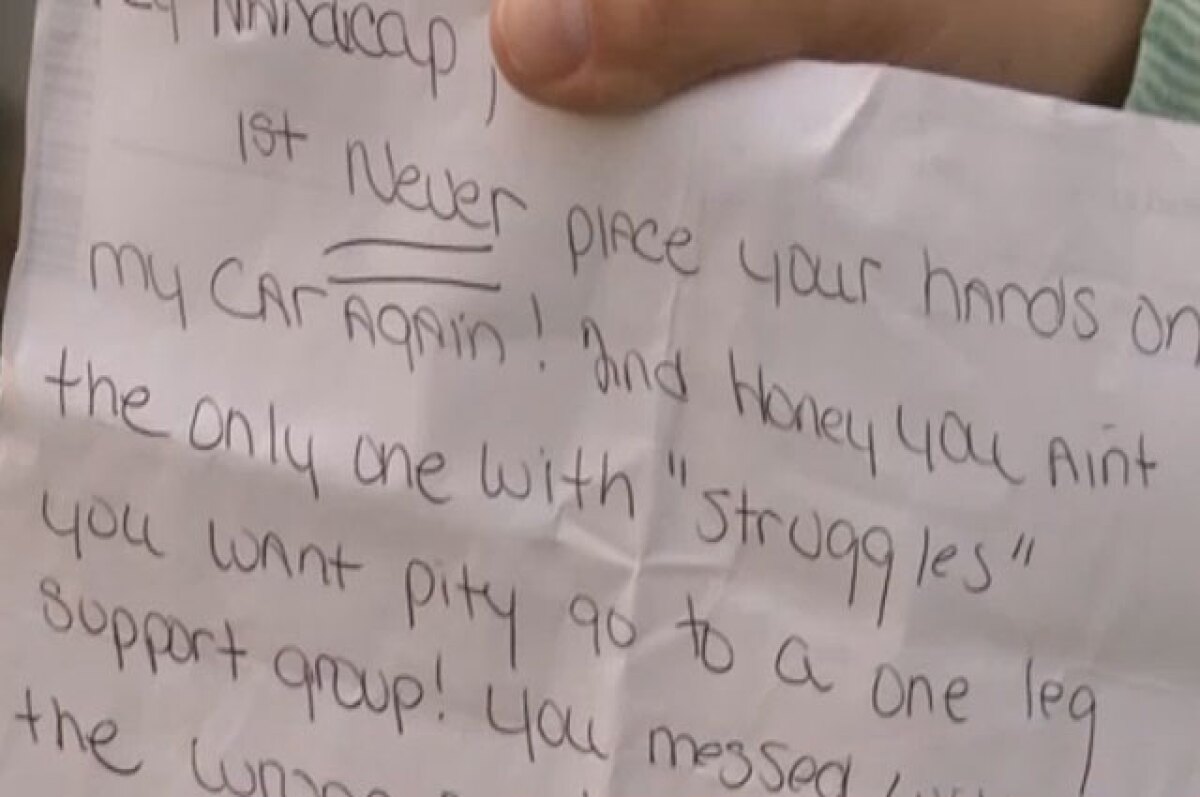 hAndicap,
1st Never plAce your hAnds on
my CAr AgAin! And Honey you Aint
the only one with "struggles"
you wAnt pity go to a one leg
support group! You messed
the